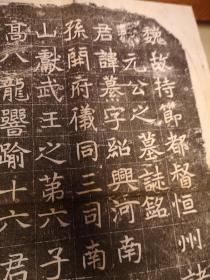 魏故持節都督恒州
元公之墓誌銘
君諱纂字紹興河南
孫開府儀同三司南
山獻武王之第六子
高八龍譽踰十六君